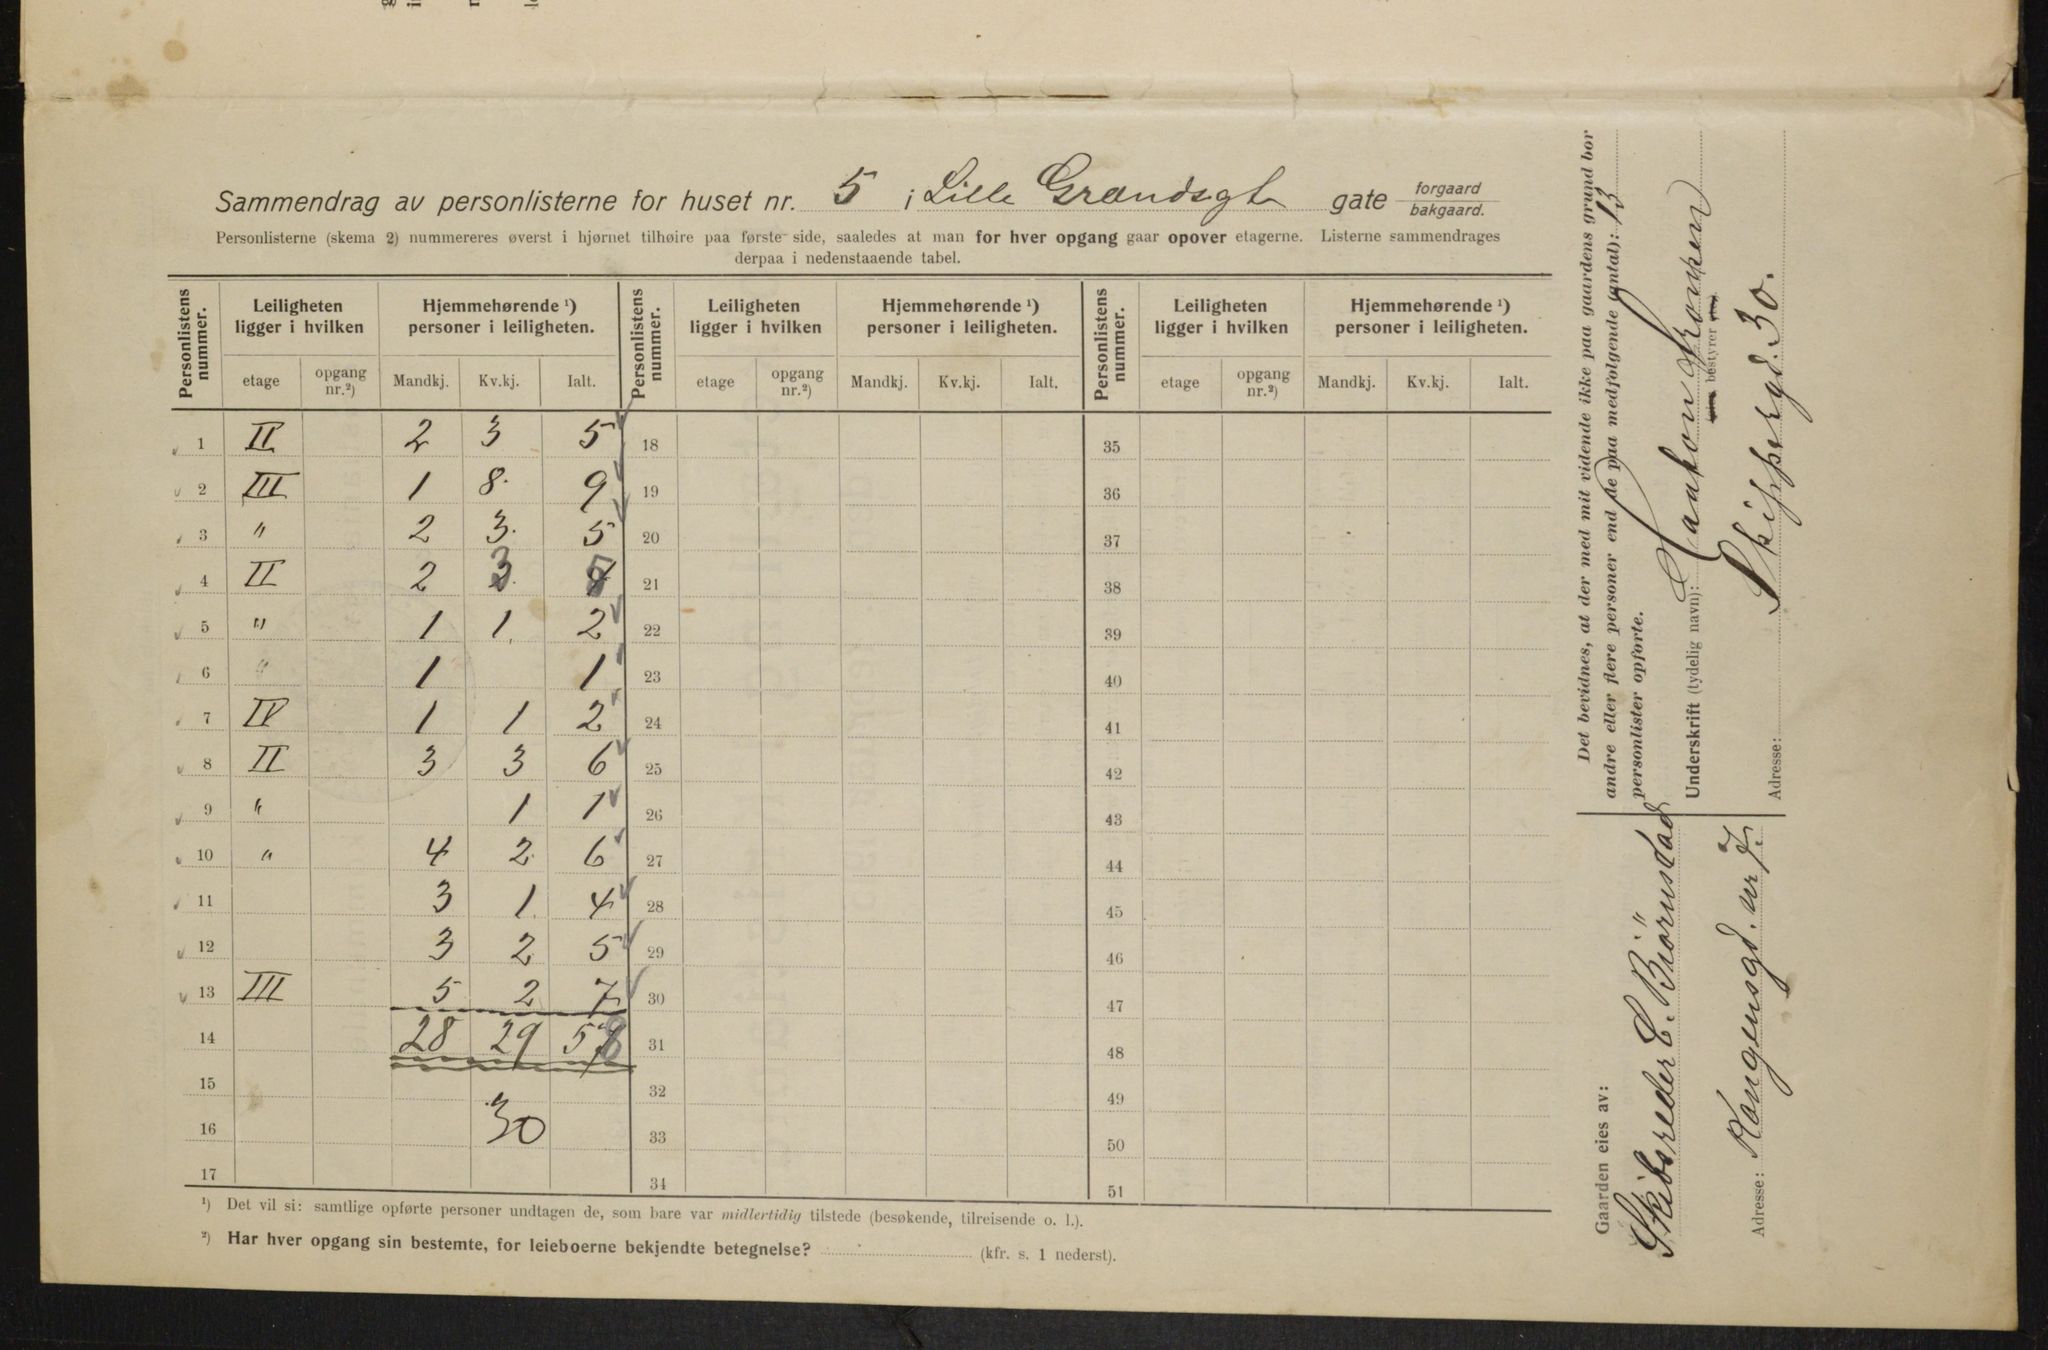 Sammendrag av personlisterne for huset nr. 5 i Lille Grændsgt gate forgaard bakgaard.
Personlisterne (skema 2) nummereres øverst i hjørnet tilhøire paa første side, saaledes at man for hver opgang gaar opover etagerne. Listerne sammendrages
derpaa i nedenstaaende tabel.
Personlistens nummer. Leiligheten ligger i hvilken Hjemmehørende ¹) personer i leiligheten. Personlistens nummer. Leiligheten ligger i hvilken Hjemmehørende ¹) personer i leiligheten. Personlistens nummer. Leiligheten ligger i hvilken Hjemmehørende ¹) personer i leiligheten.
etage opgang nr.²) Mandkj. Kv.kj. Ialt. etage opgang nr.²) Mandkj. Kv.kj. Ialt. etage opgang nr.²) Mandkj. Kv.kj. Ialt.
1 II 2 3 5 18 35
2 III 1 8. 9 19 36
3 " 2 3. 5 20 37
4 II 2 3. 5 21 38
5 " 1 1. 2 22 39
6 " 1 1 23 40
7 IV 1 1 2 24 41
8 II 3 3 6 25 42
9 " 1 1 26 43
10 " 4 2. 6 27 44
11 3 1. 4 28 45
12 3 2 5 29 46
13 III 5 2 7 30 47
14 28 29 58 31 48
15 32 49
16 30 33 50
17 34 51
¹) Det vil si: samtlige opførte personer undtagen de, som bare var midlertidig tilstede (besøkende, tilreisende o. l.).
²) Har hver opgang sin bestemte, for leieboerne bekjendte betegnelse? (kfr. s. 1 nederst).
Det bevidnes, at der med mit vidende ikke paa gaardens grund bor
andre eller flere personer end de paa medfølgende (antal): 13
personlister opførte.
Underskrift (tydelig navn): Haakon
bestyrer
Adresse: Skippergd. 30.
Gaarden eies av:
Skibsreder C. Biörnstad
Adresse: Kongensgd. nr 7.